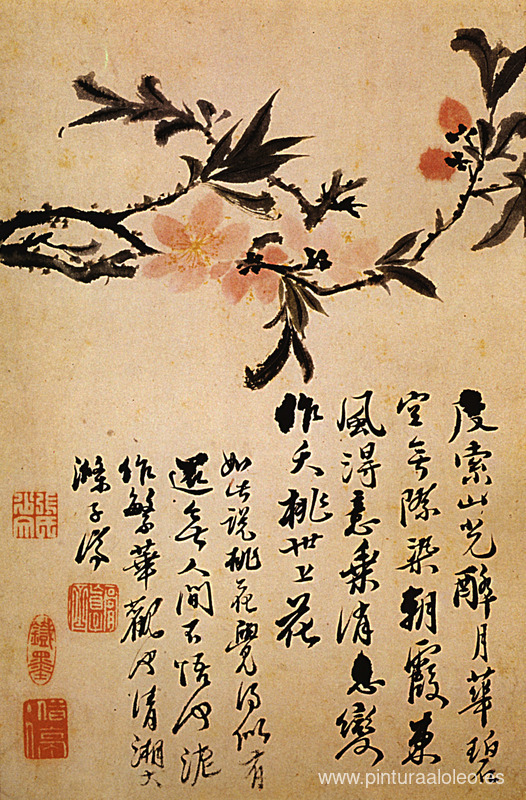 度索山光醉月華碧
空無際染朝霞東
風得意乘消息變
作夭桃世上花
如此說桃花覺得似有
還無人間不悟何泥
作繁華觀也清湘大
滌子濟
www.pinturaaloleo.es